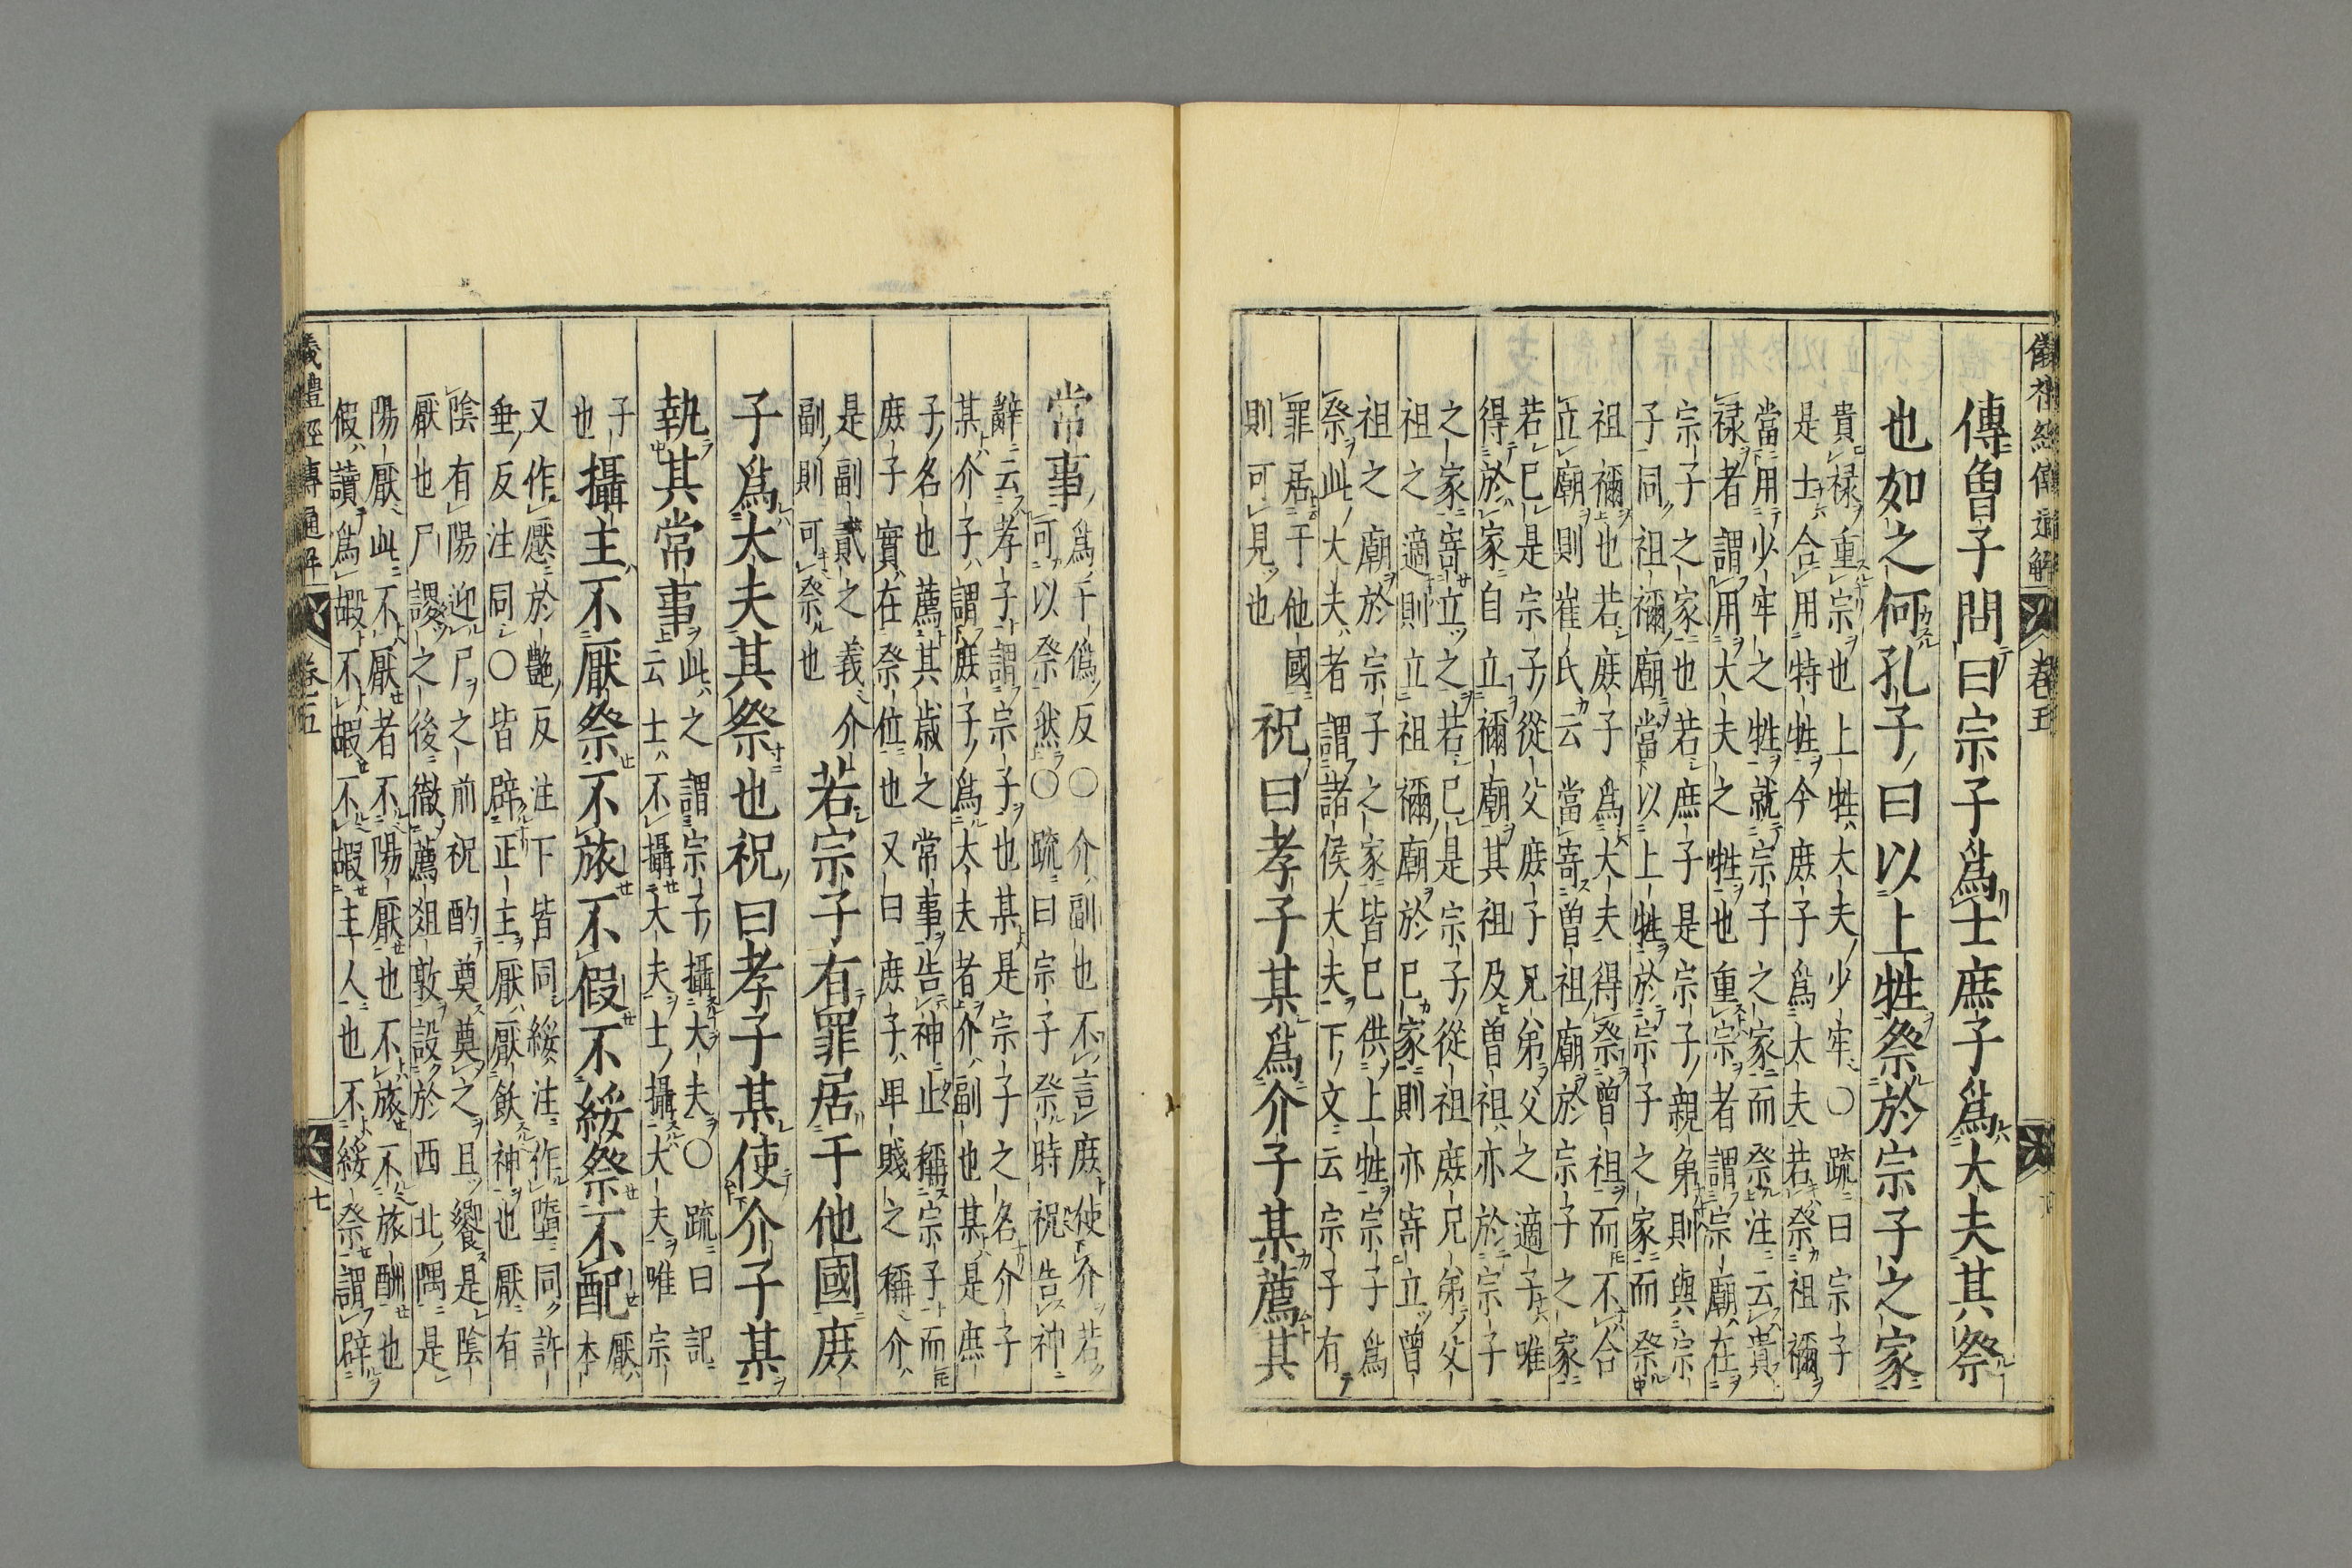 儀禮經傳通解 卷五
傳曾子問曰宗子爲士庶子爲大夫其祭
也如之何孔子曰以上牲祭於宗子之家
貴祿重宗也上牲大夫少牢〇疏曰宗子
是士合用特牲今庶子爲大夫若祭祖禰
當用少牢之牲就宗子之家而祭注云貴
祿者謂用大夫之牲也重宗者謂宗廟在
宗子之家也若庶子是宗子親弟則與宗
子同祖禰廟當以上牲於宗子之家而祭
祖禰也若庶子爲大夫得祭曾祖而不合
立廟則崔氏云當寄曾祖廟於宗子之家
若已是宗子從父庶子兄弟父之適子唯
得於家自立禰廟其祖及曾祖亦於宗子
之家寄立之若已是宗子從祖庶兄弟父
祖之適則立祖禰廟於已家則亦寄立曾
祖之廟於宗子之家皆已供上牲宗子爲
祭此大夫者謂諸侯大夫下文云宗子有
罪居于他國
則可見也
祝曰孝子某爲介子某薦其
常事
爲于僞反〇介副也不言庶使介若
可以祭然〇疏曰宗子祭時祝告神
辭云孝子孝子謂宗子也某是宗子之名介子
某介子謂庶子爲大夫者介副也某是庶
子名也薦其歲之常事告神止稱宗子而
庶子實在祭位也又曰庶子卑賤之稱介
是副貳之義介
副則可祭也
若宗子有罪居于他國庶
子爲大夫其祭也祝曰孝子某使介子某
執其常事
此之謂宗子攝大夫〇疏曰記
云士不攝大夫士攝大夫唯宗
子
也
攝主不厭祭不旅不假不綏祭不配
厭
本
又作壓於艶反注下皆同綏注作墮同許
垂反注同〇皆辟正主厭厭飫神也厭有
陰有陽迎尸之前祝酌奠奠之且饗是陰
厭也尸謖之後徹薦俎敦設於西北隅是
陽厭此不厭者不陽厭也不旅不旅酬也
假讀爲嘏不嘏不嘏主人也不綏祭謂辟
儀禮經傳通解 卷五 七